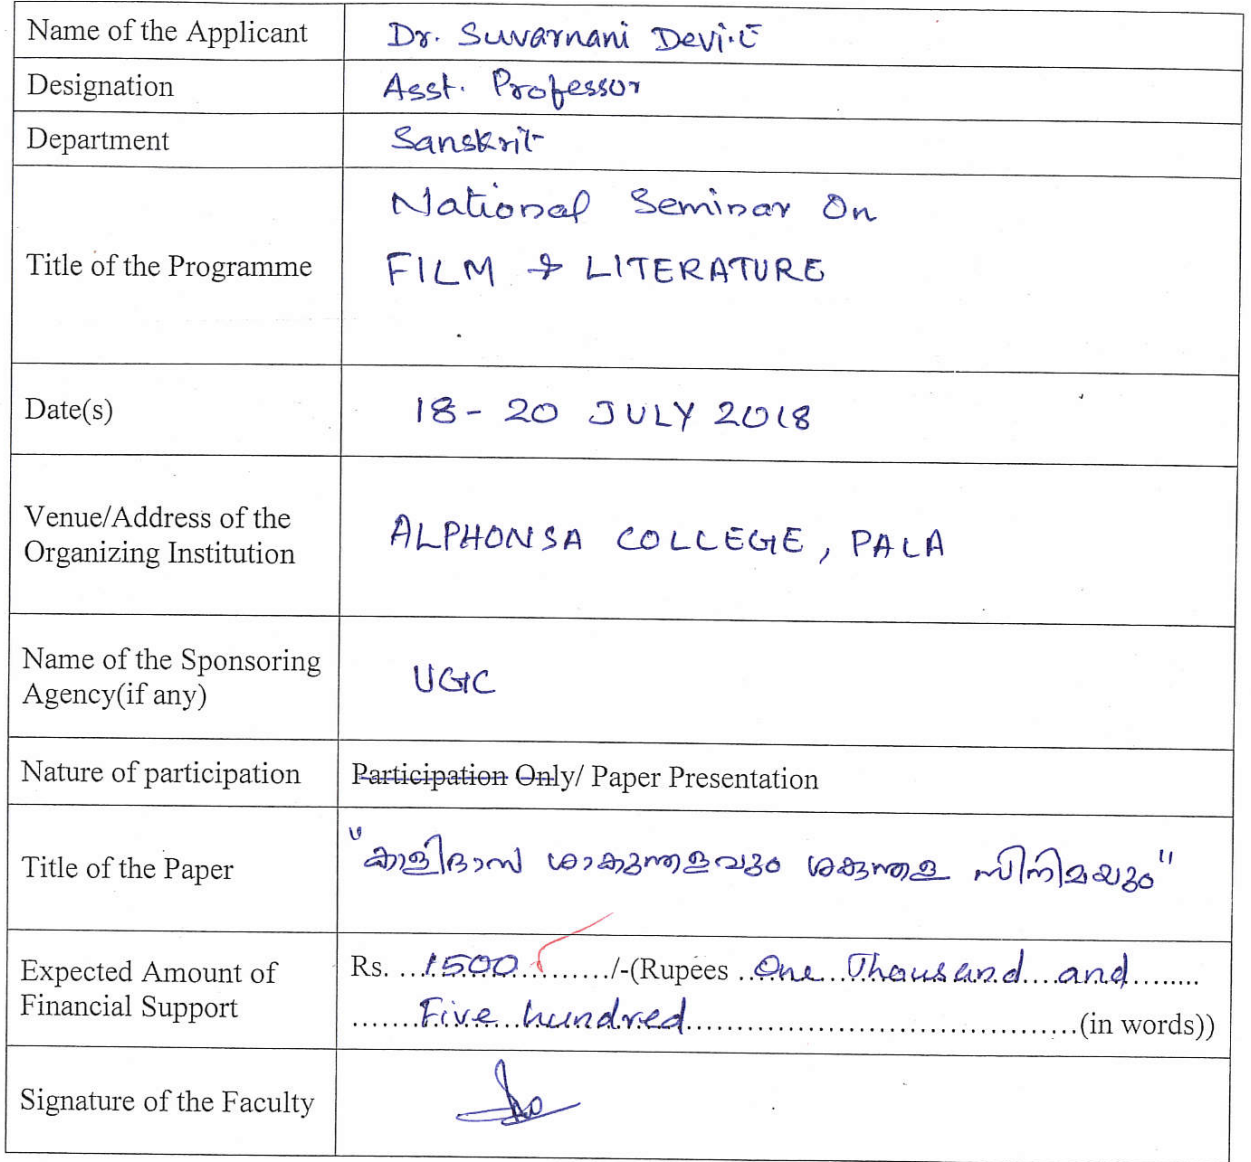 Name of the Applicant
Dr. Suvarnani Devi.E
Designation
Asst. Professor
Department
Sanskrit
Title of the Programme
National Seminar On
FILM & LITERATURE
Date(s)
18 - 20 JULY 2018
Venue/Address of the
Organizing Institution
ALPHONSA COLLEGE, PALA
Name of the Sponsoring
Agency(if any)
UGC
Nature of participation
Participation Only/ Paper Presentation
Title of the Paper
"കാളിദാസ ശാകുന്തളവും ശകുന്തള സിനിമയും"
Expected Amount of
Financial Support
Rs. ...1500.........../-(Rupees ..One...Thousand....and.........
.......Five...hundred.......................................(in words))
Signature of the Faculty